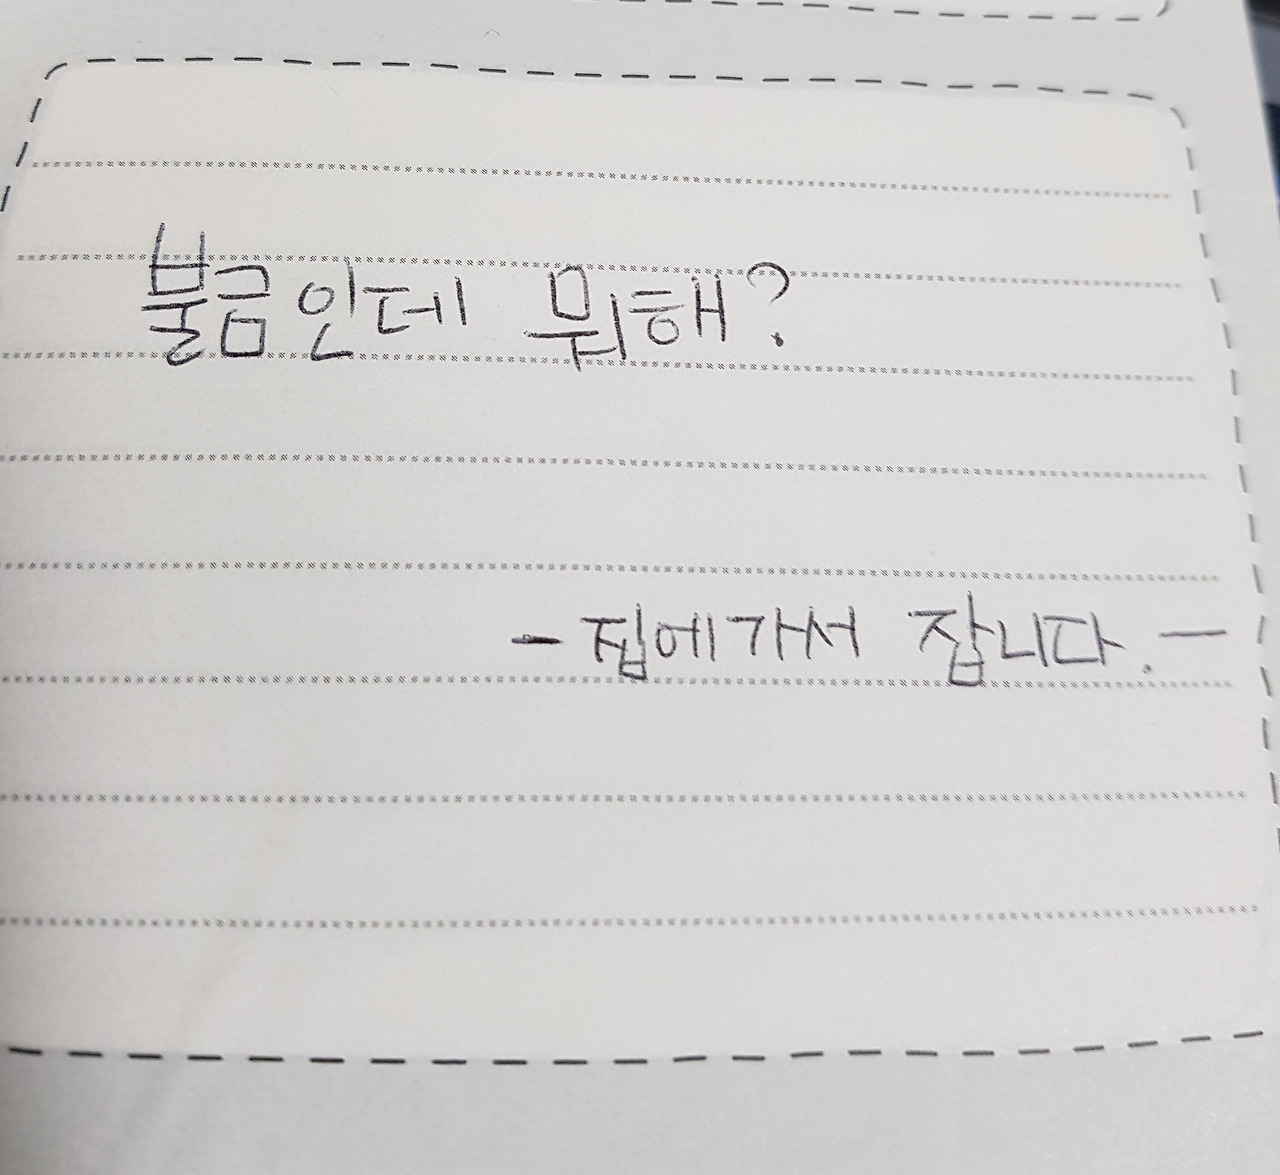 불금인데 뭐해?
- 집에가서 잡니다. -